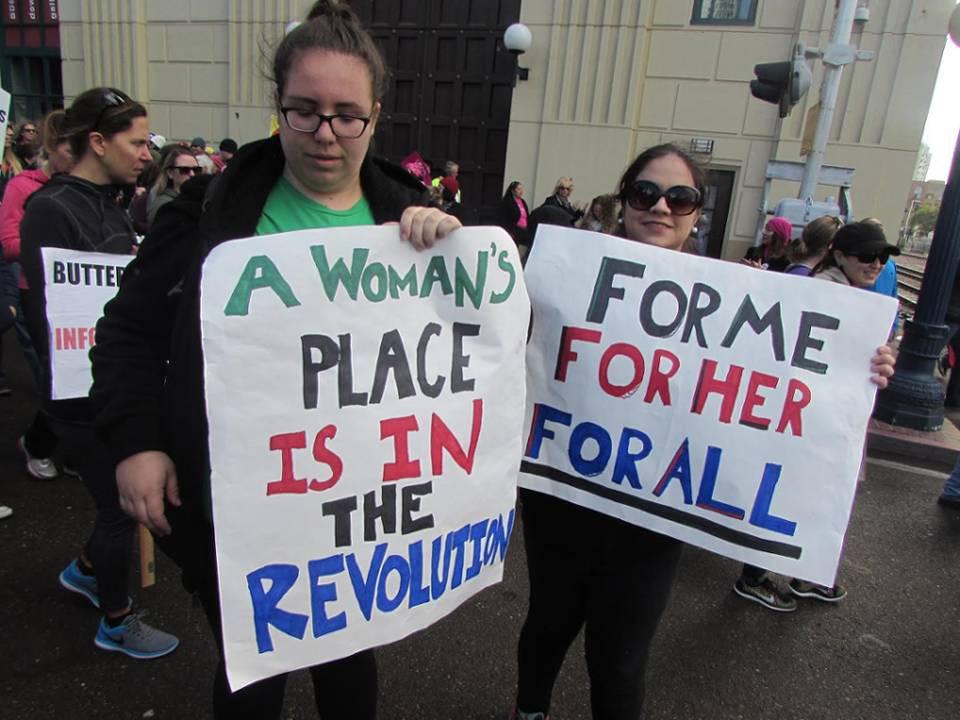 A WOMAN'S
PLACE
IS IN
THE
REVOLUTION
FOR ME
FOR HER
FOR ALL